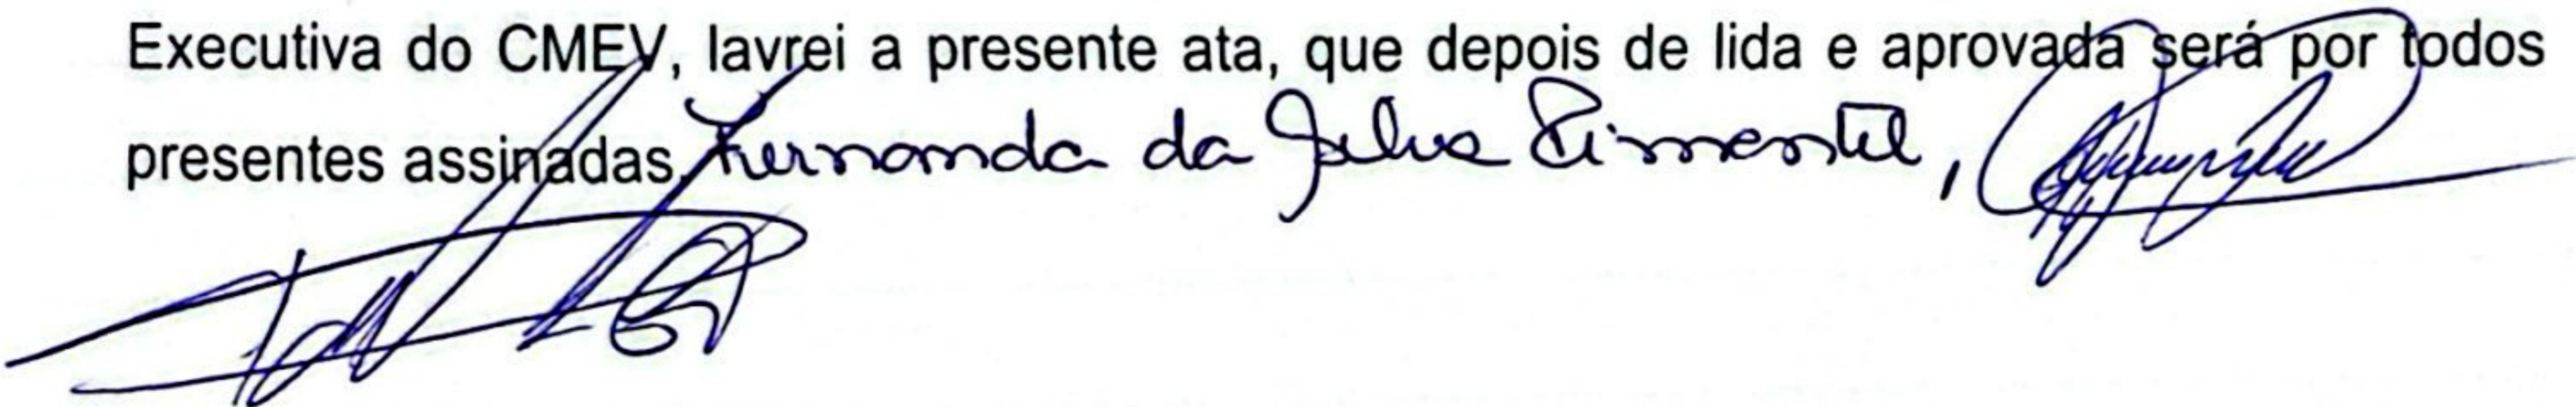 Executiva do CMEV, lavrei a presente ata, que depois de lida e aprovada será por todos
presentes assinadas, Fernanda da Silva Pimentel,